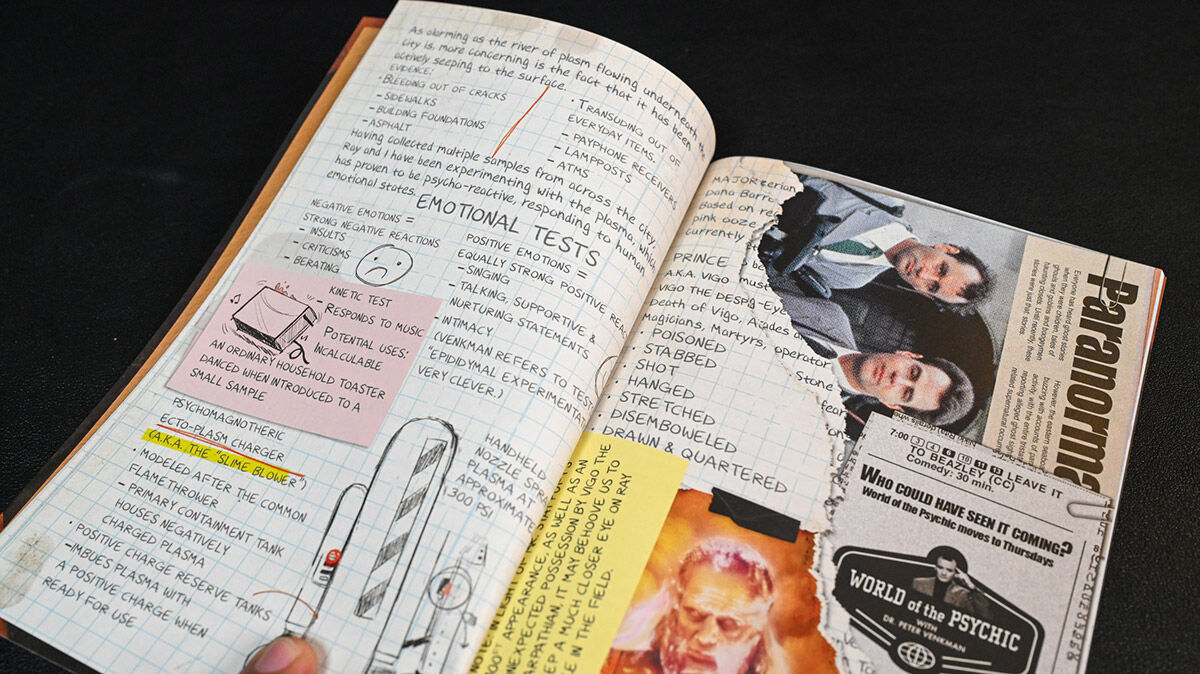 As alarming as the river of plasm flowing underneath the
city is, more concerning is the fact that it has been
actively seeping to the surface.
EVIDENCE:
• BLEEDING OUT OF CRACKS
- SIDEWALKS
- BUILDING FOUNDATIONS
- ASPHALT
• TRANSUDING OUT OF
EVERYDAY ITEMS.
- PAYPHONE RECEIVERS
- LAMPPOSTS
- ATMS
Having collected multiple samples from across the city,
Ray and I have been experimenting with the plasma, which
has proven to be psycho-reactive, responding to human
emotional states.
EMOTIONAL TESTS
NEGATIVE EMOTIONS =
STRONG NEGATIVE REACTIONS
- INSULTS
- CRITICISMS
- BERATING
POSITIVE EMOTIONS =
EQUALLY STRONG POSITIVE
- SINGING
- TALKING, SUPPORTIVE &
NURTURING STATEMENTS
- INTIMACY
(VENKMAN REFERS TO TEST
"EPIDIDYMAL
VERY CLEVER.)
KINETIC TEST
- RESPONDS TO MUSIC
POTENTIAL USES:
INCALCULABLE
AN ORDINARY HOUSEHOLD TOASTER
DANCED WHEN INTRODUCED TO A
SMALL SAMPLE
PSYCHOMAGNOTHERIC
ECTO-PLASM CHARGER
(A.K.A. THE "SLIME BLOWER")
• MODELED AFTER THE COMMON
FLAMETHROWER
- PRIMARY CONTAINMENT TANK
HOUSES NEGATIVELY
CHARGED PLASMA
• POSITIVE CHARGE RESERVE TANKS
- IMBUES PLASMA WITH
A POSITIVE CHARGE WHEN
READY FOR USE
HANDHELD
NOZZLE
PLASMA AT
APPROXIMATE
1,300 PSI
MAJOR
Dana Barre
Based on re
pink ooze
currently
PRINCE
A.K.A. VIGO
VIGO THE
Death of Vigo,
Magicians, Martyrs, operator
• POISONED
• STABBED
• SHOT
• HANGED
• STRETCHED
• DISEMBOWELED
• DRAWN & QUARTERED
Stone
APPEARANCE, AS WELL AS AN
POSSESSION BY VIGO THE
IT MAY BEHOOVE US TO
A MUCH CLOSER EYE ON RAY
IN THE FIELD.
Paranorma
Everyone has heard ghost stories
when they were children, tales of
ghosts and goblins and boogeymen
haunting closets. Until recently, these
stories were just that: stories.
However, the eastern seaboard
buzzing with accounts of
activity, with the entire
reporting alleged ghost
related supernatural
7:00 3 4 6 10 11 13 LEAVE IT
TO BEAZLEY (CC)
Comedy: 30 min.
WHO COULD HAVE SEEN IT COMING?
World of the Psychic moves to Thursdays
WORLD of the PSYCHIC
WITH
DR. PETER VENKMAN